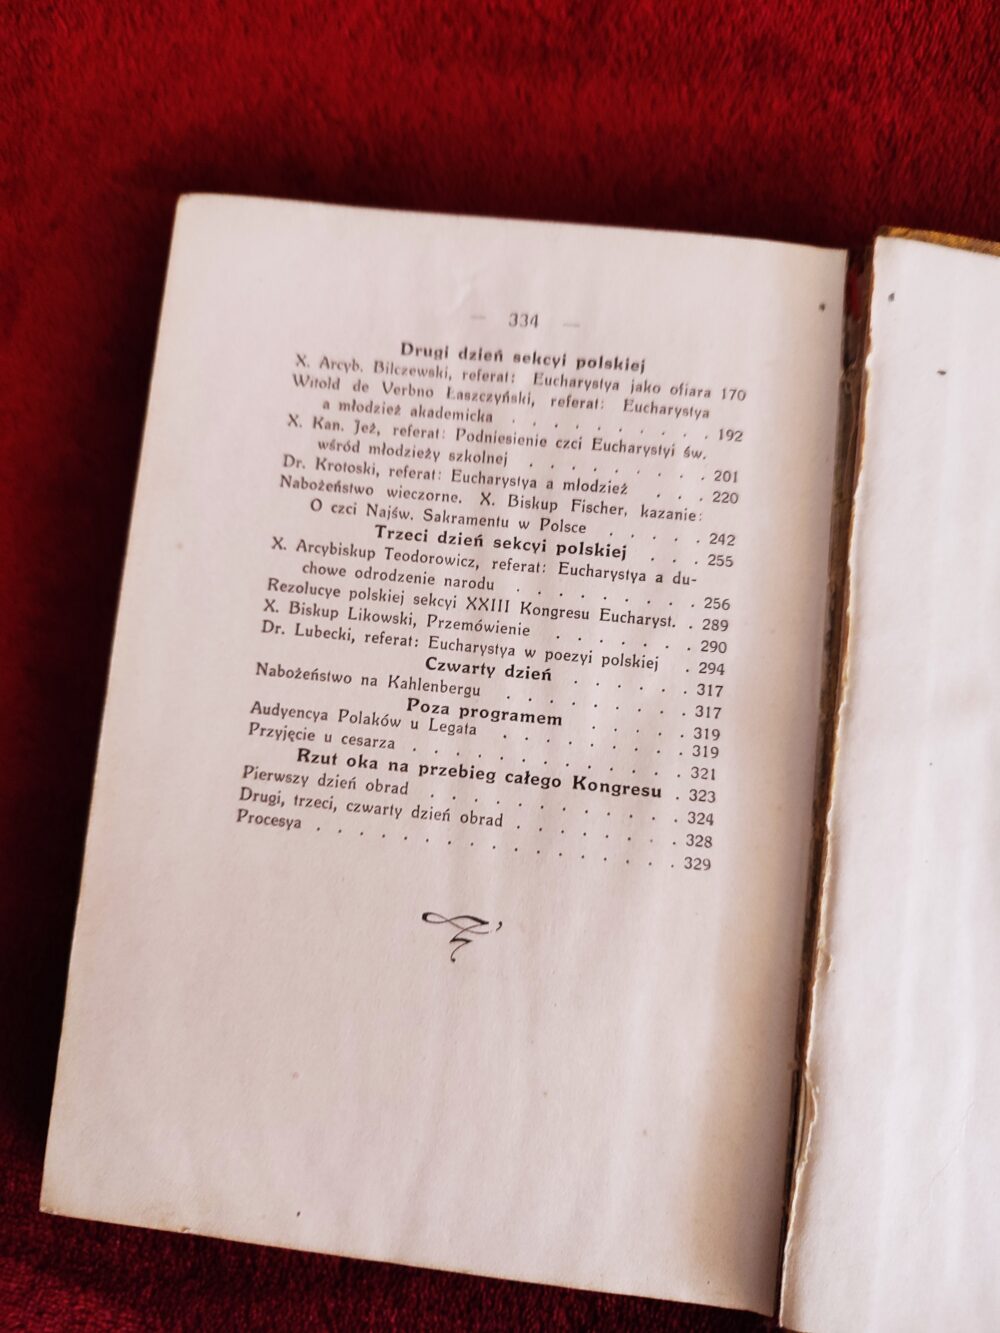 — 334 —
Drugi dzień sekcyi polskiej
X. Arcyb. Bilczewski, referat: Eucharystya jako ofiara 170
Witold de Verbno Łaszczyński, referat: Eucharystya
a młodzież akademicka . . . . . . . . . 192
X. Kan. Jeż, referat: Podniesienie czci Eucharystyi św.
wśród młodzieży szkolnej . . . . . . . . 201
Dr. Krotoski, referat: Eucharystya a młodzież . . . 220
Nabożeństwo wieczorne. X. Biskup Fischer, kazanie:
O czci Najśw. Sakramentu w Polsce . . . . . 242
Trzeci dzień sekcyi polskiej . . . 255
X. Arcybiskup Teodorowicz, referat: Eucharystya a du-
chowe odrodzenie narodu . . . . . . . . . 256
Rezolucye polskiej sekcyi XXIII Kongresu Eucharyst. . 289
X. Biskup Likowski, Przemówienie . . . . . . . 290
Dr. Lubecki, referat: Eucharystya w poezyi polskiej . 294
Czwarty dzień . . . . . . 317
Nabożeństwo na Kahlenbergu . . . . . . . . . 317
Poza programem . . . . . 319
Audyencya Polaków u Legata . . . . . . . . . 319
Przyjęcie u cesarza . . . . . . . . . . . . . 321
Rzut oka na przebieg całego Kongresu . 323
Pierwszy dzień obrad . . . . . . . . . . . . 324
Drugi, trzeci, czwarty dzień obrad . . . . . . . . 328
Procesya . . . . . . . . . . . . . . . . . 329